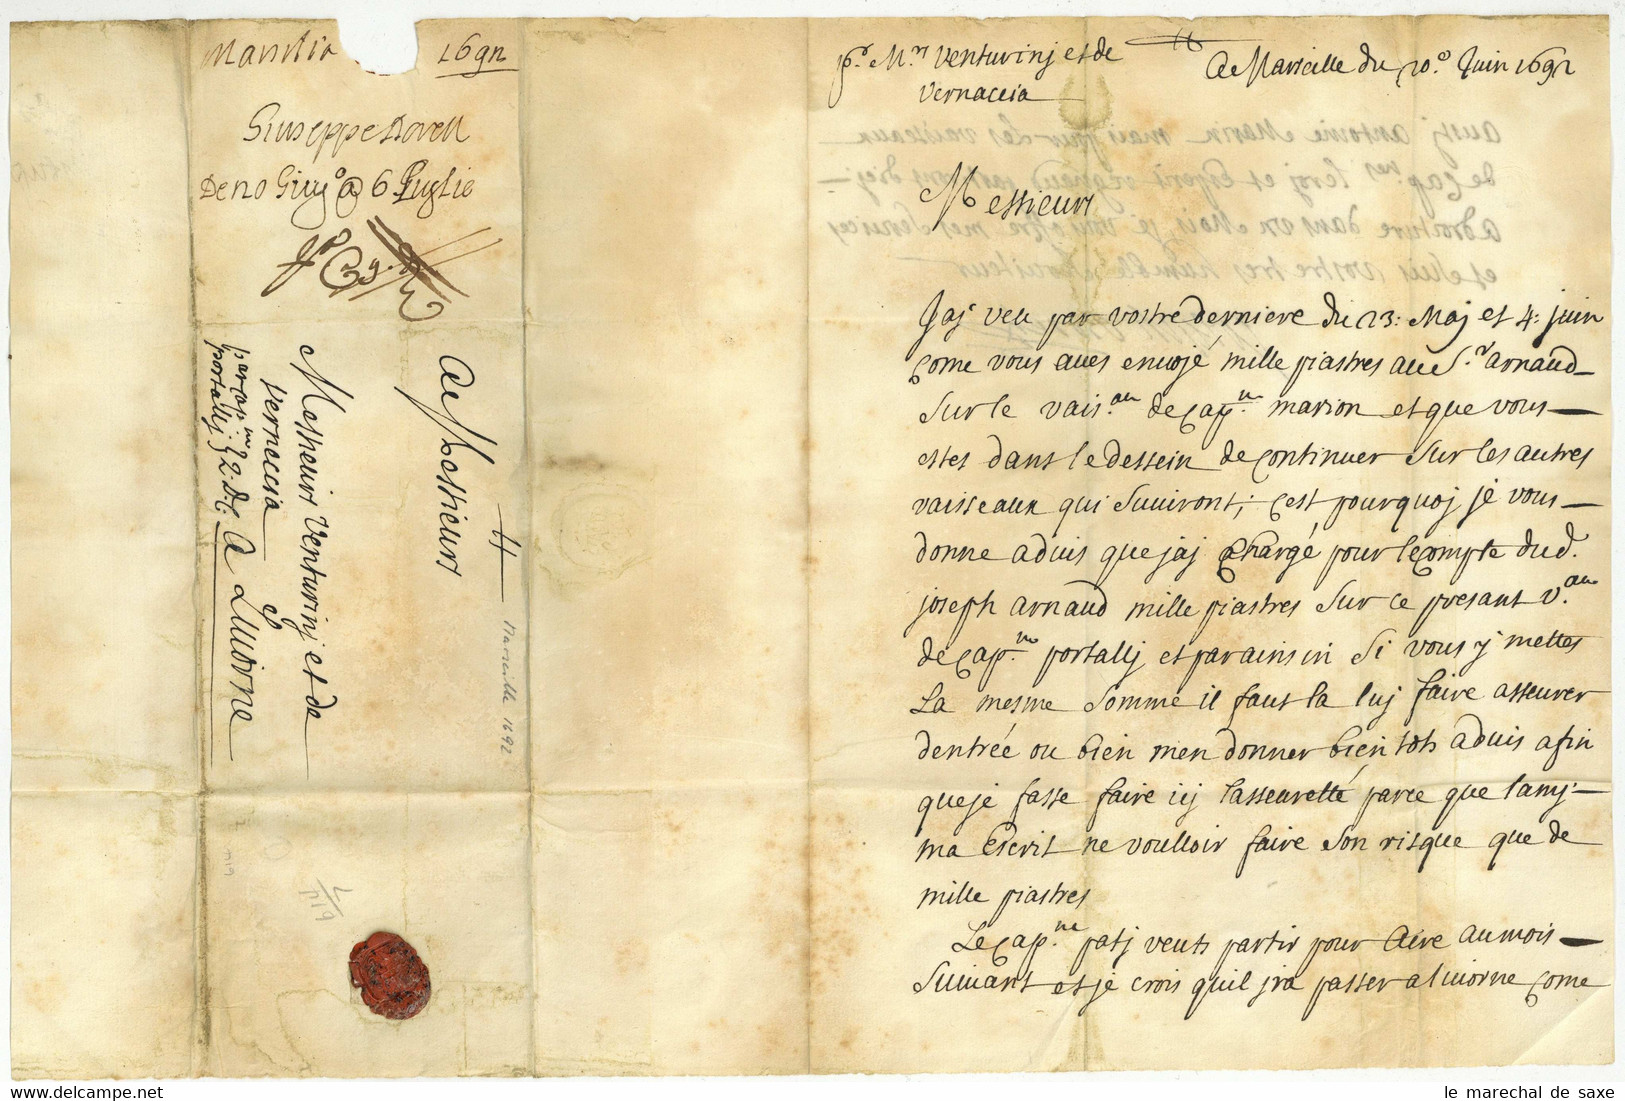 Marsilia 1692
Giuseppe Rovell
De 20 Giug.o @ 6 Luglio
A Messieurs
Messieurs Venturinj et de
Vernaccia
par cap.ne
portallj } 2. D. C. A Liuorne
Marseille 1692
p.r M.rs Venturinj et de
Vernaccia
A Marseille du 20.e Juin 1692
Messieurs
Jaj veu par vostre derniere du 23: Maj et 4: juin
Come vous aues envojé mille piastres au S.r arnaud
Sur le vais.au de cap.ne marion et que vous
estes dans le dessein de continuer Sur les autres
vaisseaux qui Suiuront; c'est pourquoj je vous
donne aduis que jaj Chargé pour le compte dud.
joseph arnaud mille piastres Sur ce presant v.au
de cap.ne portallj et par ainsin Si vous y mettes
La mesme Somme il faut la luj faire asseurer
dentrée ou bien men donner bien tots aduis afin
que je fasse faire icj lasseuretté parce que lamj
ma Escrit ne voulloir faire Son risque que de
mille piastres
Le cap.ne patj veuts partir pour Acre au mois
Suiuant et je crois quil jra passer a liuorne Come
le marechal de saxe